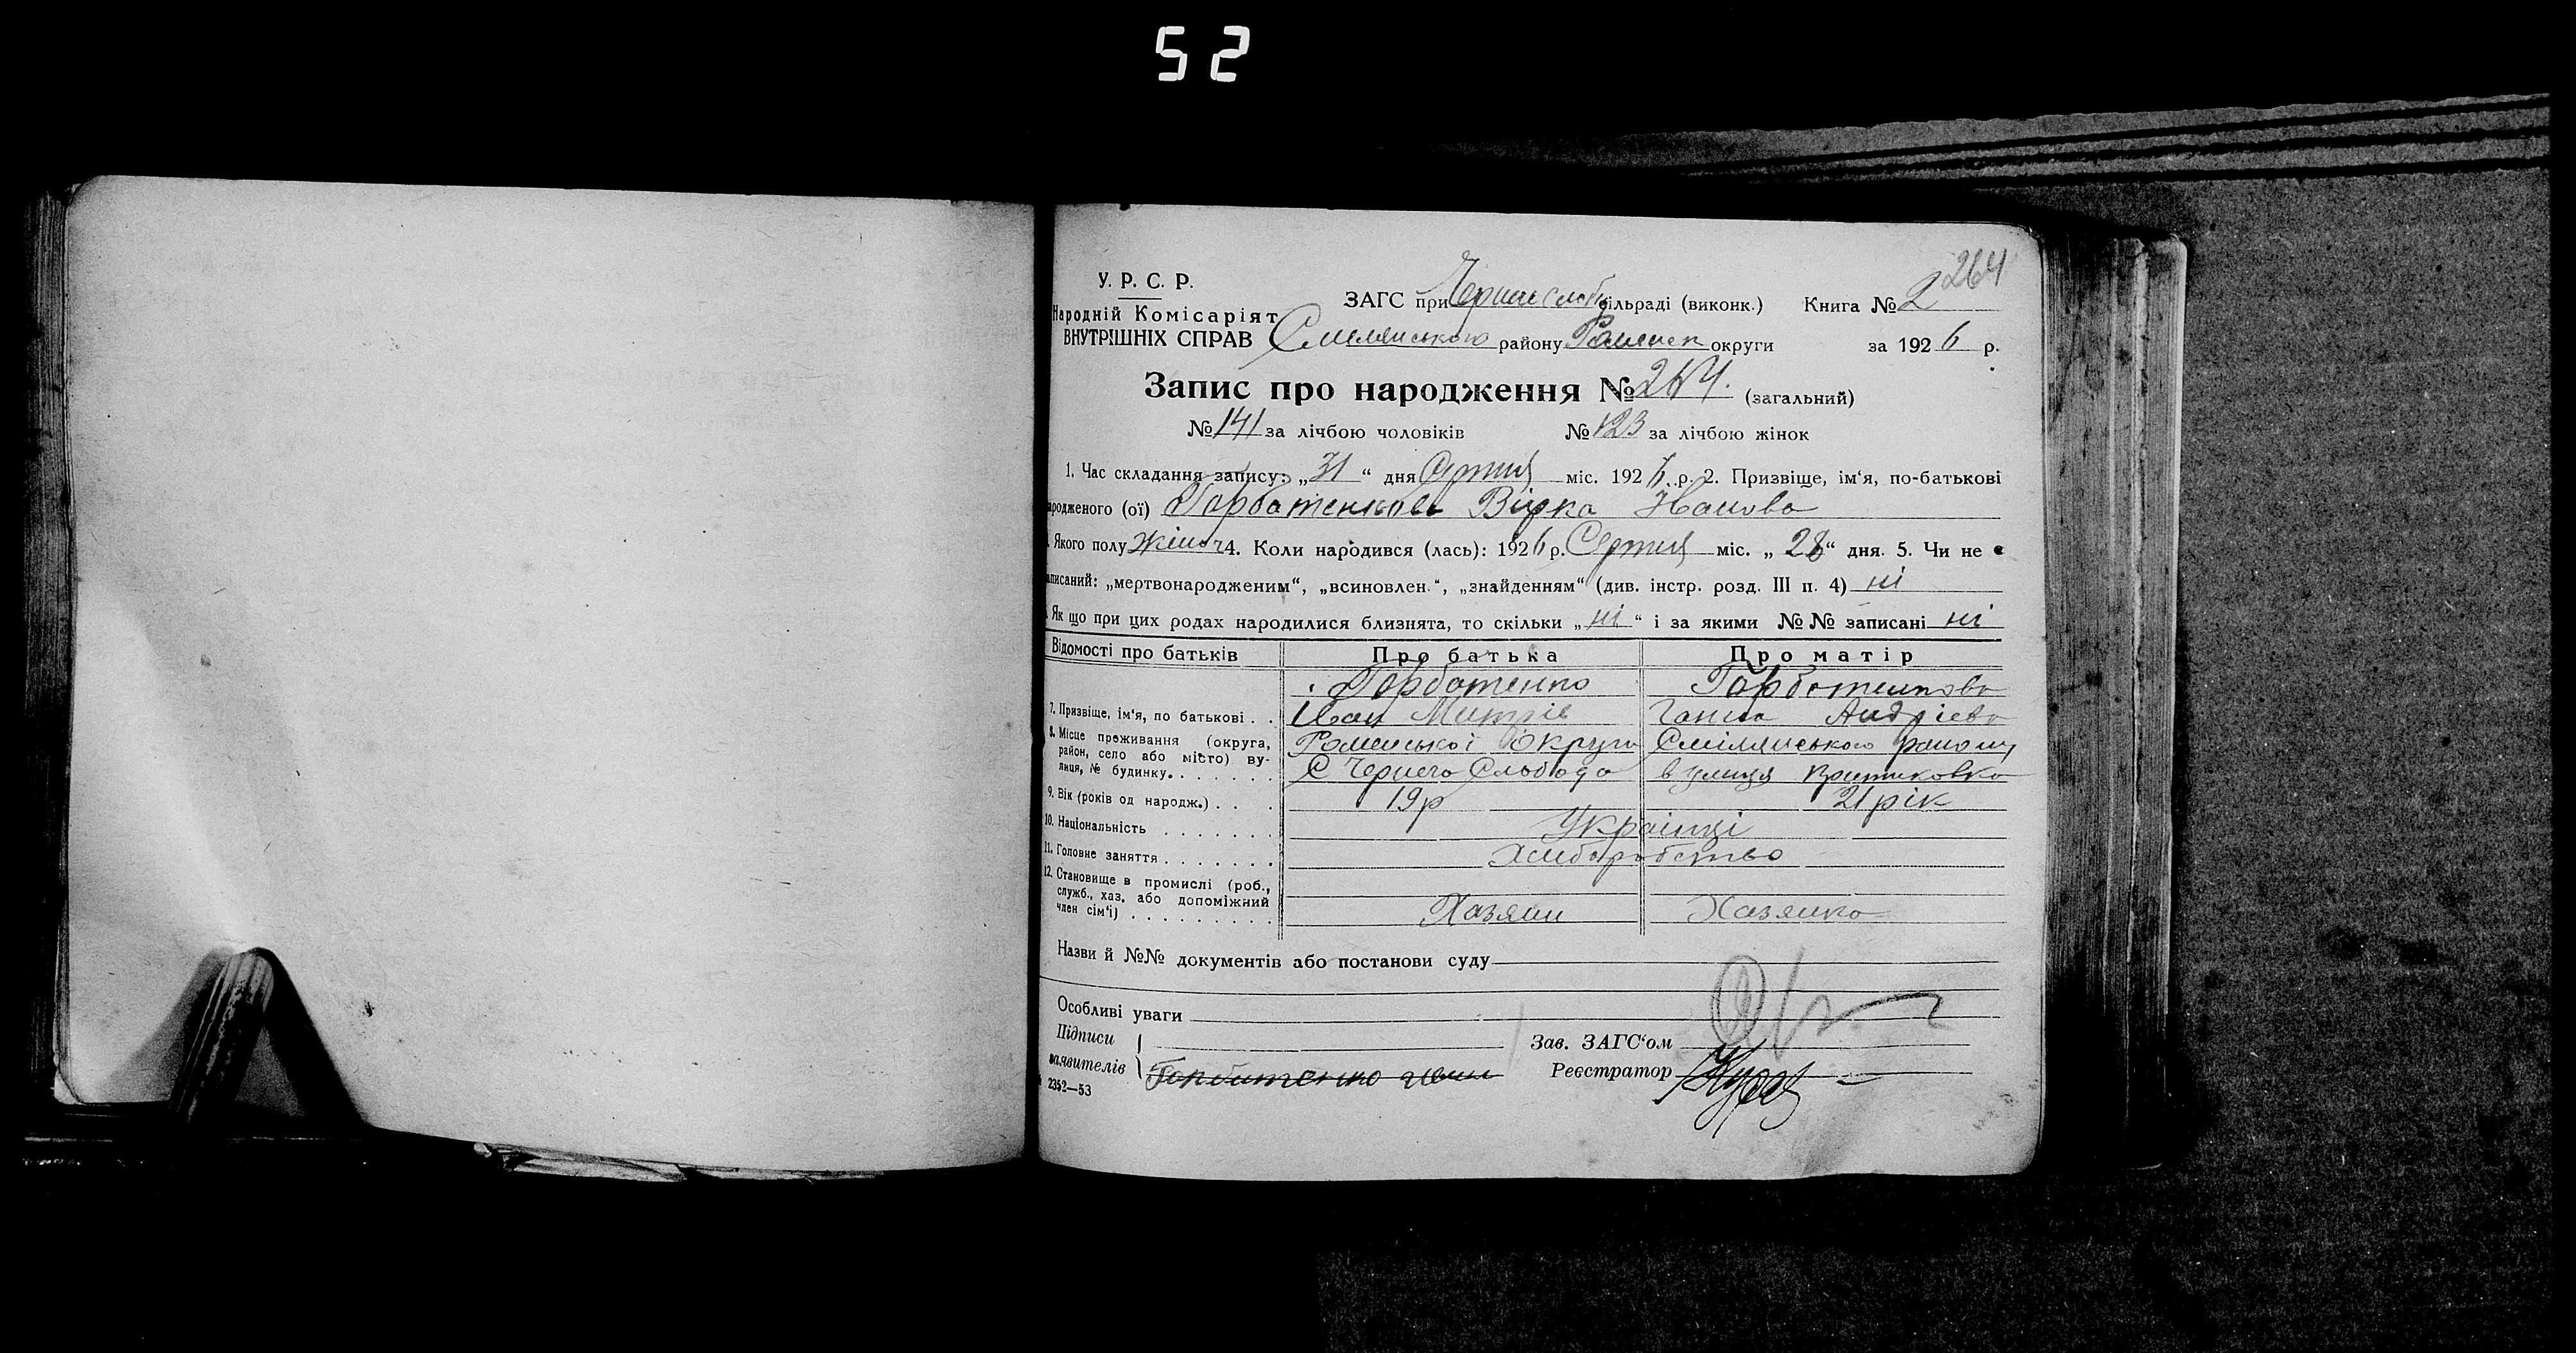 52
264
У. Р. С. Р.
Народній Комісаріят
ВНУТРІШНІХ СПРАВ
ЗАГС при сільраді (виконк.) Книга № 2
Смілянського району Роменск округи за 1926 р.
Запис про народження № 264. (загальний)
№ 141 за лічбою чоловіків № 123 за лічбою жінок
1. Час складання запису: „31“ дня Серпня міс. 1926 р. 2. Призвіще, ім‘я, по-батькові
народженого (ої) Горбатенкова Вірка Іванова
Якого полу Жіноч 4. Коли народився (лась): 1926 р. Серпня міс. „28“ дня. 5. Чи не є
записаний: „мертвонародженим“, „всиновлен.“, „знайденням“ (див. інстр. розд. III п. 4) ні
Як що при цих родах народилися близнята, то скільки „ні“ і за якими №№ записані ні
Відомості про батьків Про батька Про матір
Горбатенко Горбатенкова
7. Призвіще, ім‘я, по батькові . . Іван Митрів Ганна Андрієва
8. Місце проживання (округа, район, село або місто) вулиця, № будинку. . . . . . . Роменської Округи Смілянського району
С Чернеча Слобода вулиця
9. Вік (років од народж.) . . . 19 р 21 рік
10. Національність . . . . . . . Українці
11. Головне заняття . . . . . . . Хліборобство
12. Становище в промислі (роб., служб., хаз. або допоміжний член сім‘ї) . . . . . . . . . Хазяин Хазяйка
Назви й №№ документів або постанови суду
Особливі уваги
Підписи
заявителів Горбатенко
Зав. ЗАГС‘ом
Реєстратор
2352—53